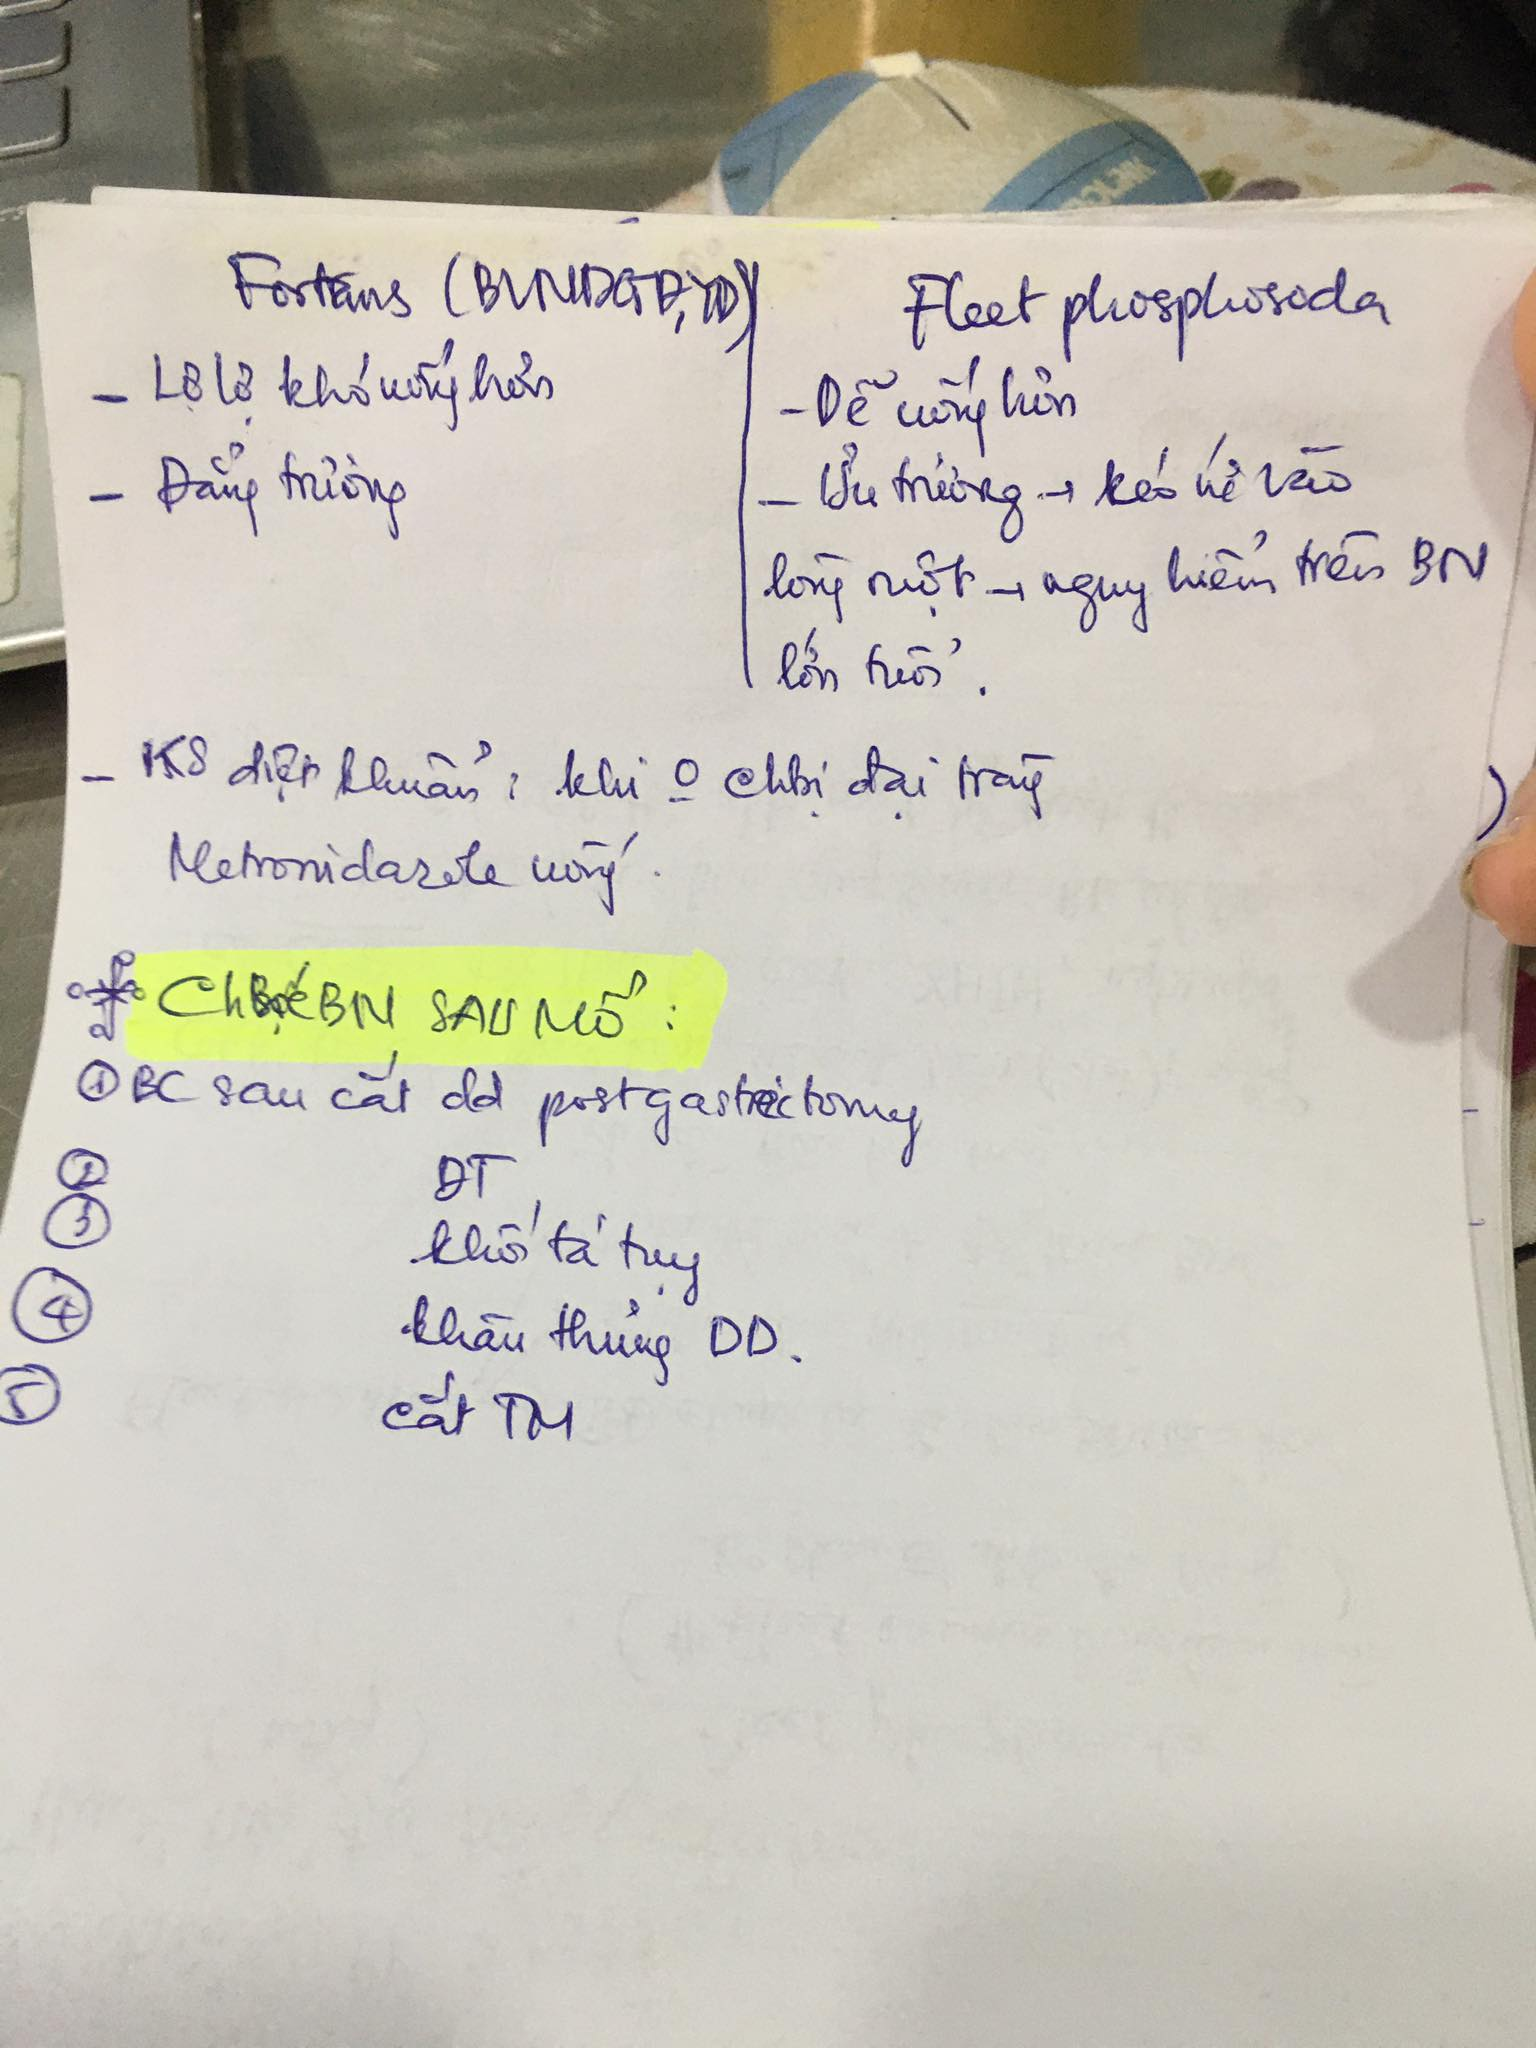 Fortans (BVNDGĐ, YD)
- Lợ lợ khó uống hơn
- Đẳng trương
Fleet phosphosoda
- Dễ uống hơn
- Ưu trương → kéo nc vào
lòng ruột → nguy hiểm trên BN
lớn tuổi.
- KS diệt khuẩn : khi o chbị đại tràng
Metronidazole uống.
BN SAU MỔ :
① BC sau cắt dd postgastrectomy
② ĐT
③ khối tá tụy
④ khâu thủng DD.
⑤ cắt TM